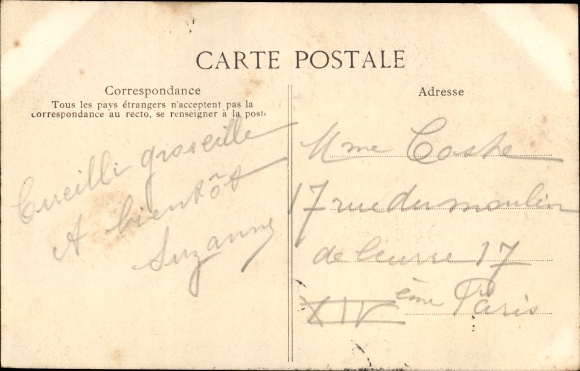 CARTE POSTALE
Correspondance
Tous les pays étrangers n'acceptent pas la
correspondance au recto, se renseigner à la poste
Cueilli groseille
A bientôt
Suzanne
Adresse
Mme Coste
17 rue du moulin
de beurre 17
XIV ème Paris